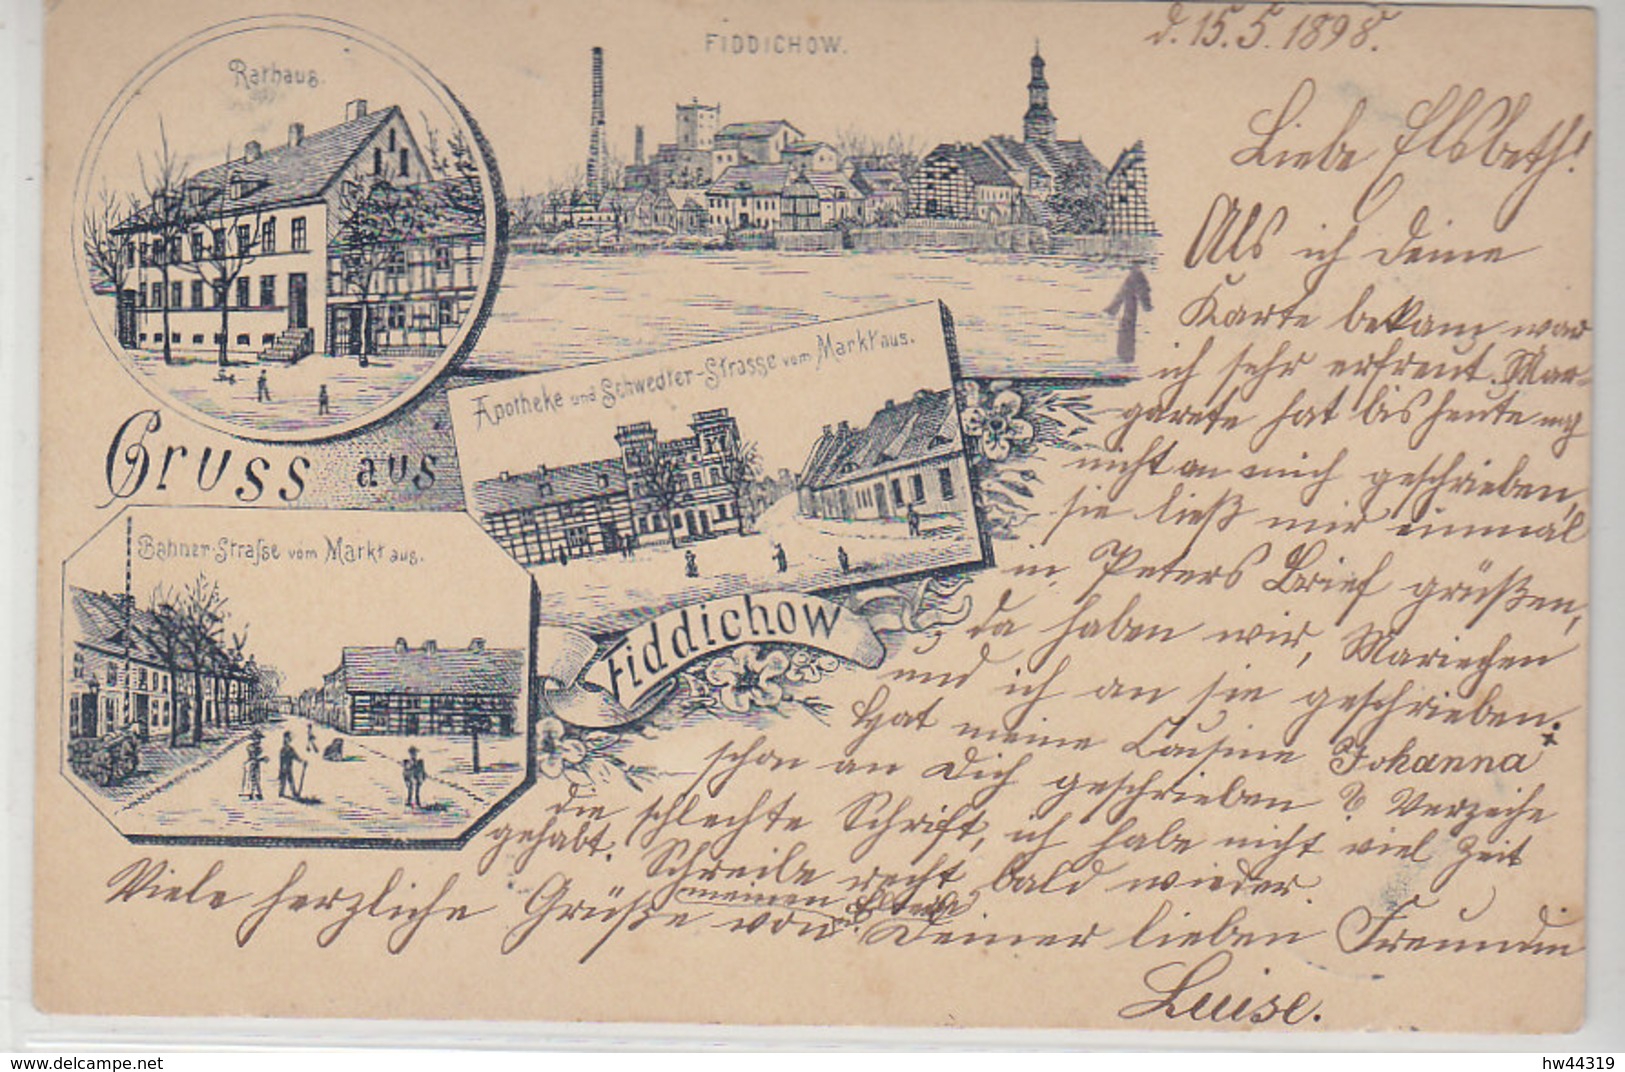 d. 15. 5. 1898.
FIDDICHOW.
Rathaus.
Liebe Elsbeth!
Als ich Deine
Karte bekam war
ich sehr erfreut. Mar-
garete hat bis heute noch
nicht an mich geschrieben,
sie ließ mir einmal
in Peters Brief grüßen,
da haben wir, Mariechen
und ich an sie geschrieben.
Hat meine Cousine Johanna
schon an Dich geschrieben? Verzeihe
die schlechte Schrift, ich habe nicht viel Zeit
gehabt. Schreibe recht bald wieder.
Viele herzliche Grüße von Deiner lieben Freundin
meinen Eltern
Luise.
Apotheke und Schwedter-Strasse vom Markt aus.
Gruss aus
Bahner-Straße vom Markt aus.
Fiddichow
hw44319
delcampe.net